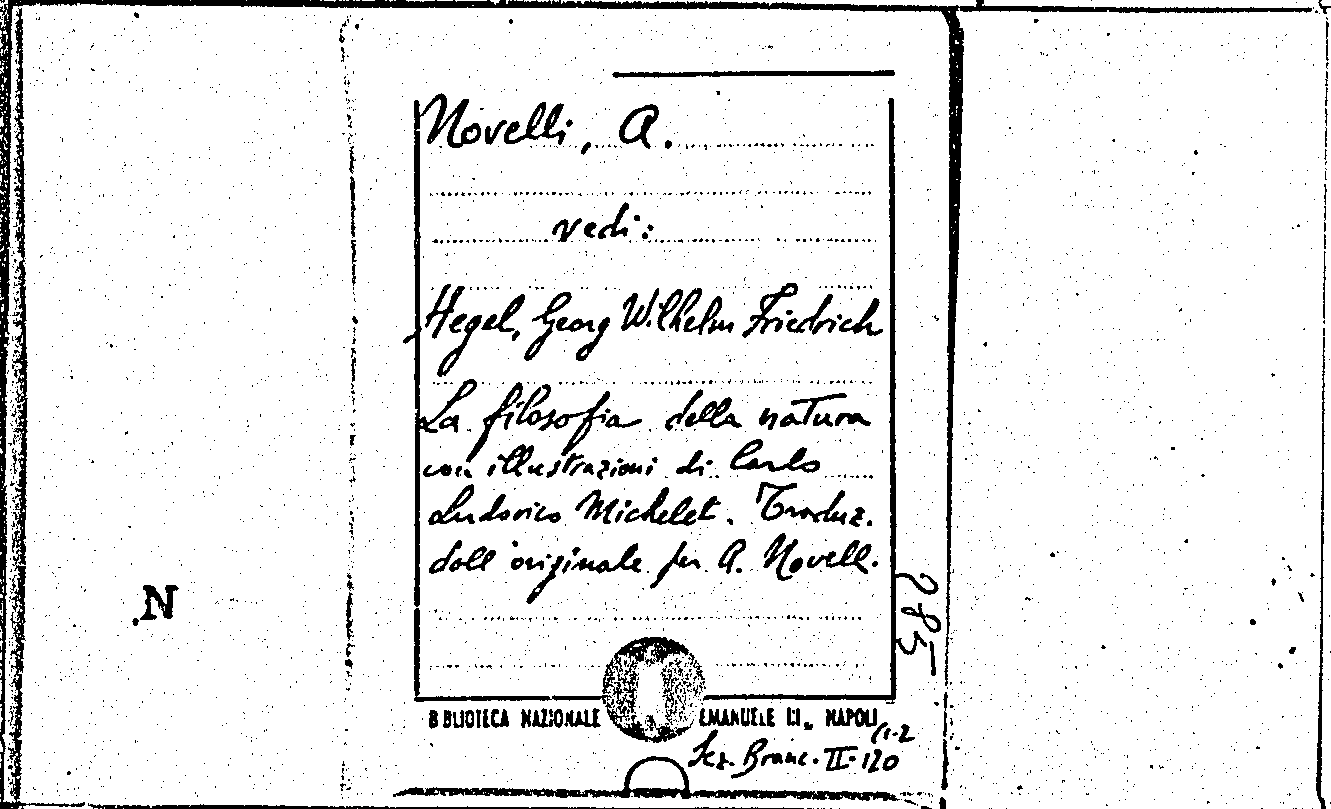 Novelli, A.
vedi:
Hegel, Georg Wilhelm Friedrich
La filosofia della natura
con illustrazioni di Carlo
Ludovico Michelet. Traduz.
dall'originale per A. Novelli.
N
285
BIBLIOTECA NAZIONALE EMANUELE III„ NAPOLI
(1-2
Sez. Branc. II-120